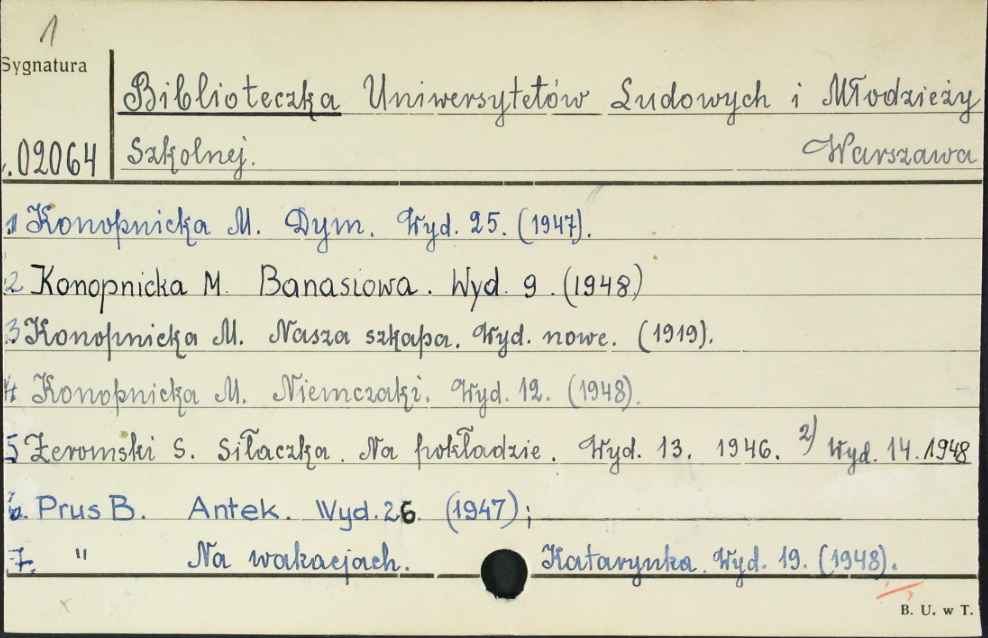 1
Sygnatura
Biblioteczka Uniwersytetów Ludowych i Młodzieży
.02064 Szkolnej. Warszawa
1 Konopnicka M. Dym. Wyd. 25. (1947).
2 Konopnicka M. Banasiowa. Wyd. 9. (1948)
3 Konopnicka M. Nasza szkapa. Wyd. nowe. (1919).
4 Konopnicka M. Niemczaki. Wyd. 12. (1948).
5 Żeromski S. Siłaczka. Na pokładzie. Wyd. 13. 1946. 2) Wyd. 14. 1948
6. Prus B. Antek. Wyd. 26. (1947);
7. " Na wakacjach. Katarynka. Wyd. 19. (1948).
B. U. w T.